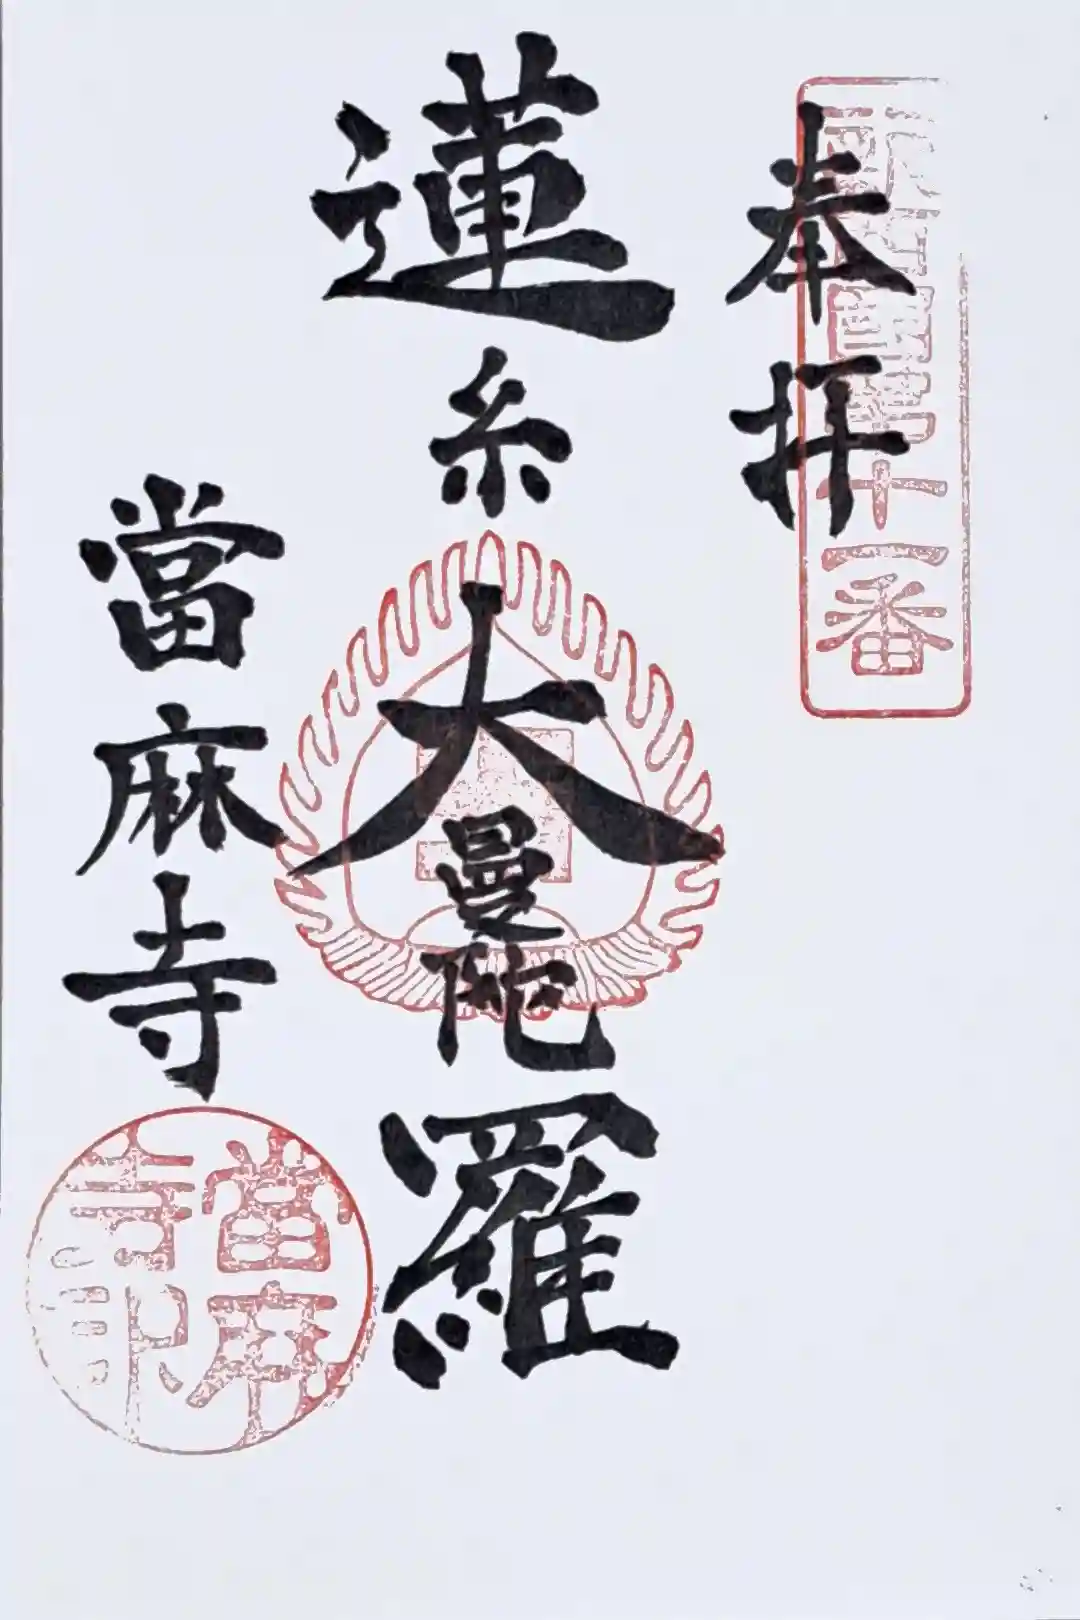 奉拝
西国第十一番
蓮糸大曼陀羅
當麻寺
當麻寺印